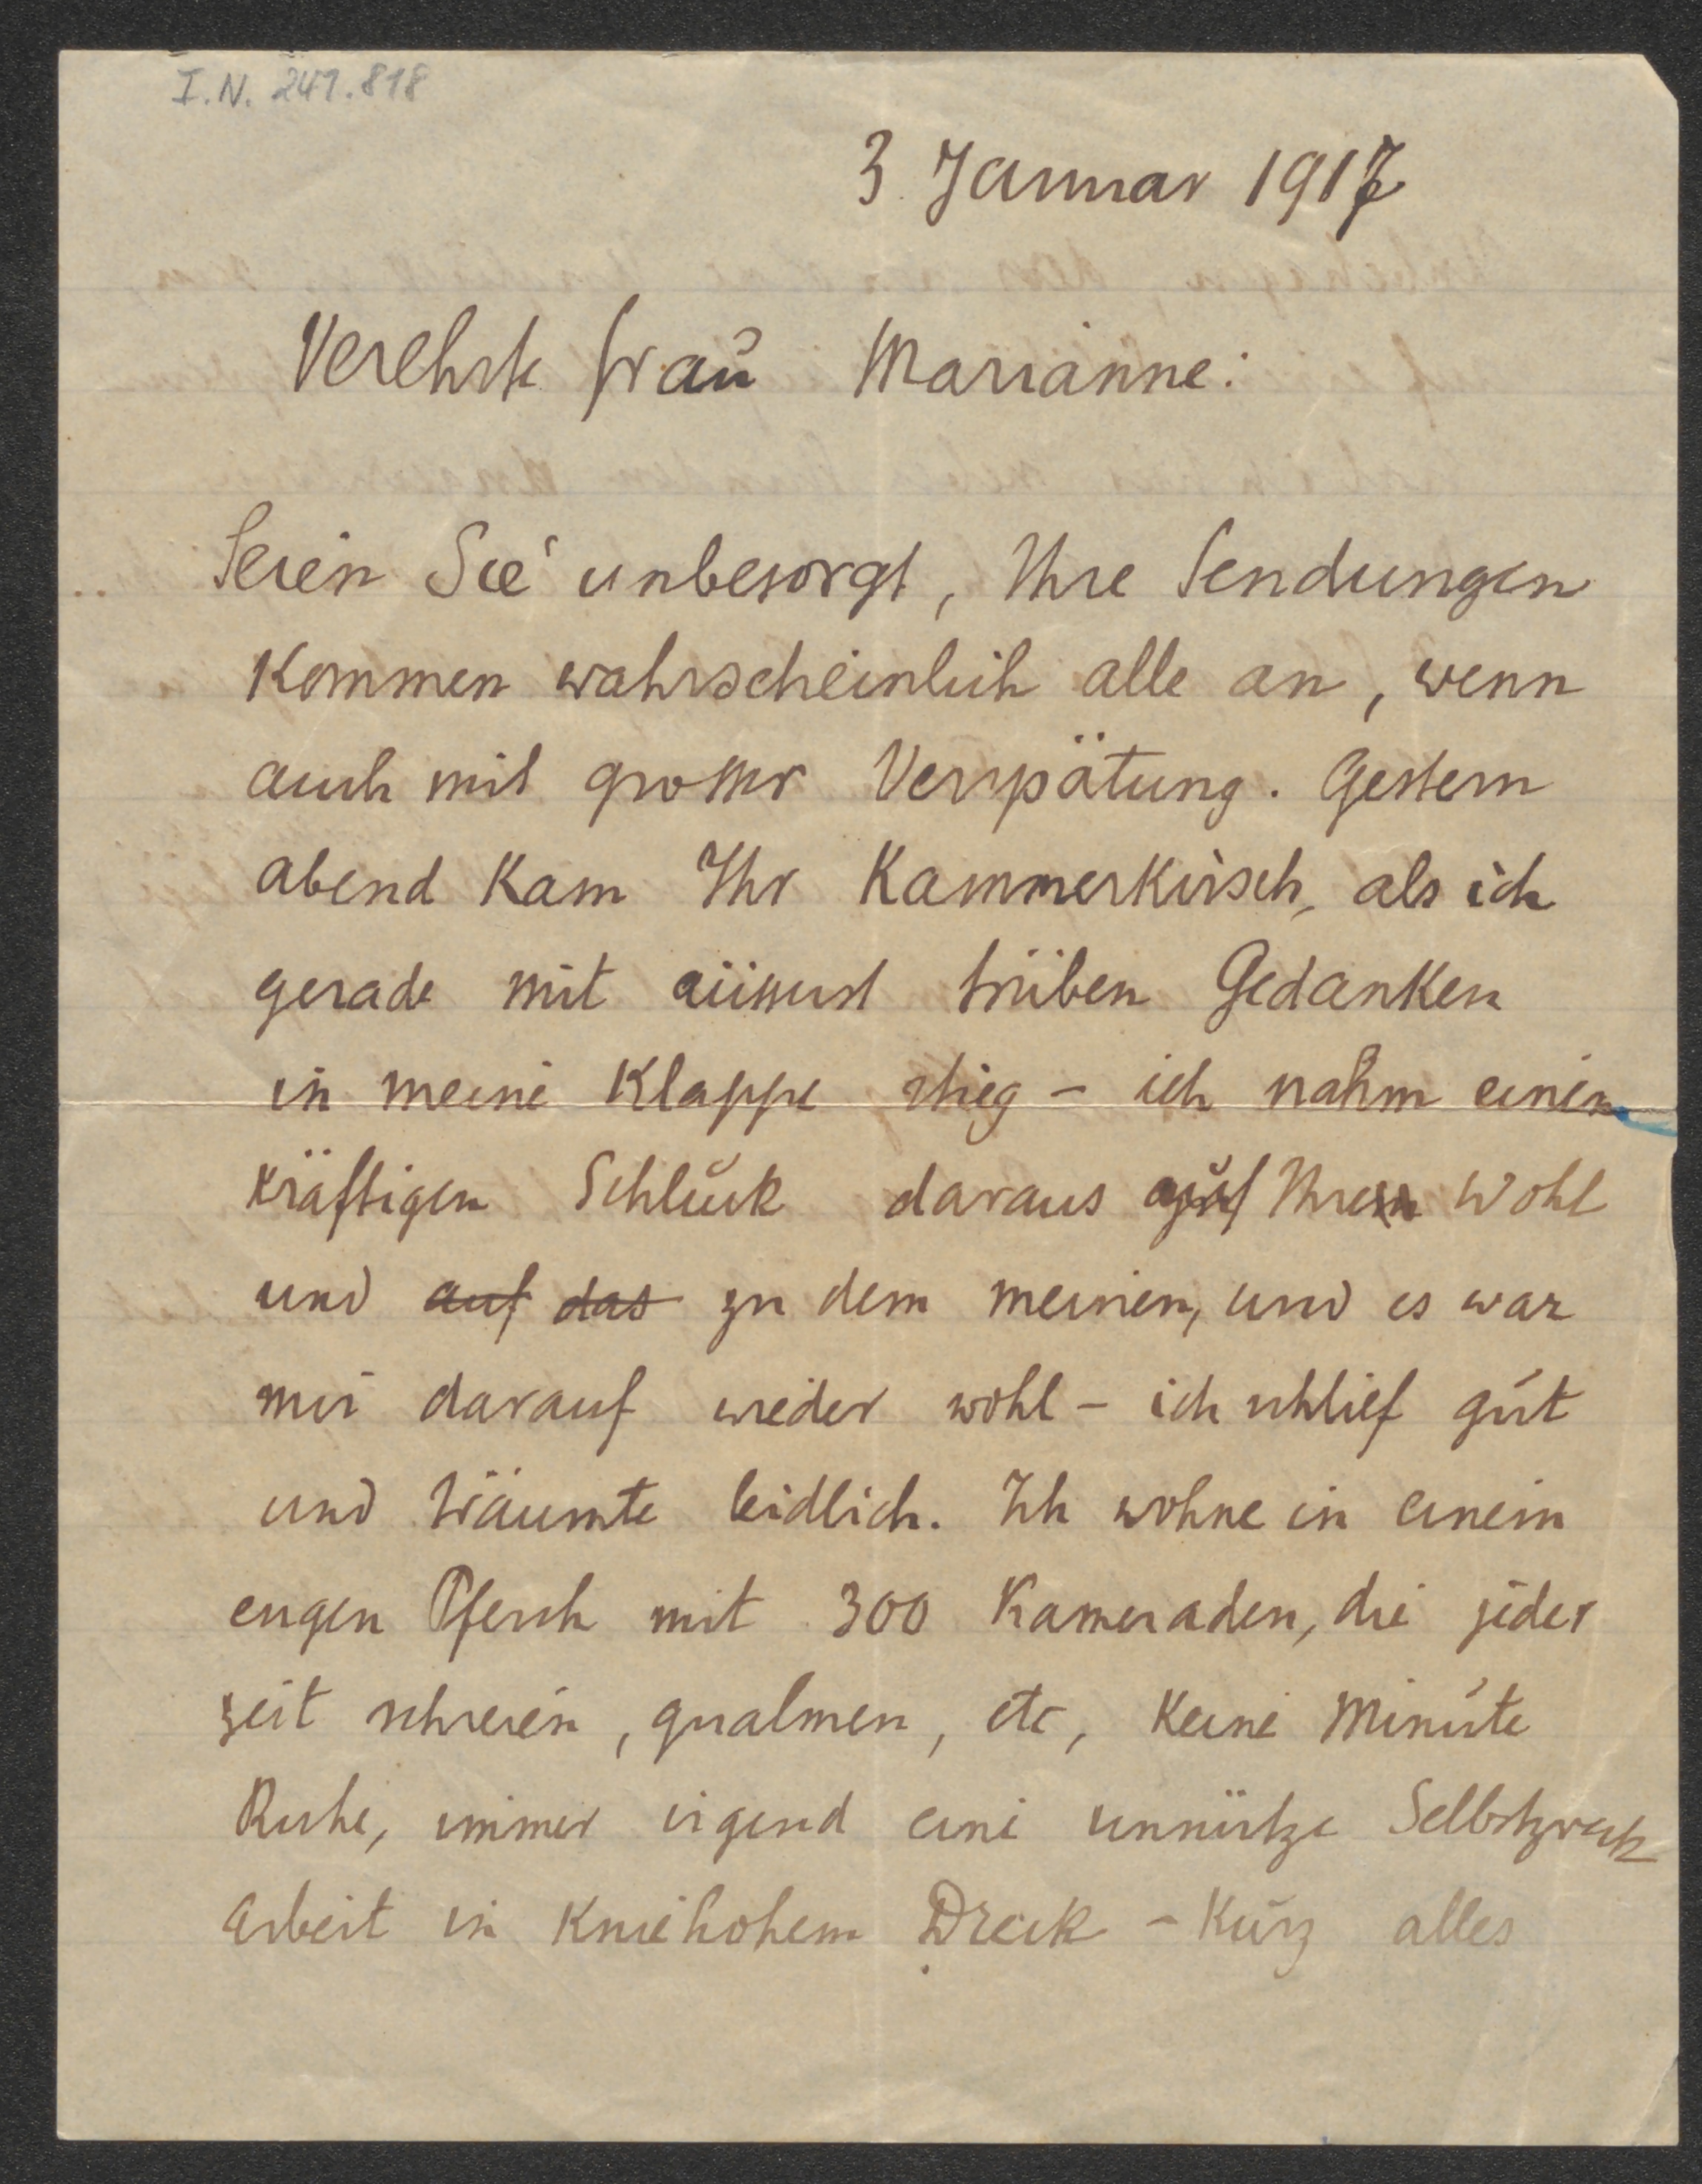 I.N. 241.818
3. Januar 1917
Verehrte Frau Marianne:
Seien Sie unbesorgt, Ihre Sendungen
kommen wahrscheinlich alle an, wenn
auch mit grosser Verspätung. Gestern
abend kam Ihr Kammerkirsch, als ich
gerade mit äüsserst trüben Gedanken
in meine Klappe stieg – ich nahm einen
kräftigen Schluck daraus auf Ihrem Wohl
und auf das zu dem meinen, und es war
mir darauf wieder wohl – ich schlief gut
und träumte leidlich. Ich wohne in einem
engen Pferch mit 300 Kameraden, die jeder
zeit schreien, qualmen, etc, keine Minute
Ruhe, immer irgend eine unnütze Selbstzweck
arbeit in kniehohem Dreck – kurz alles